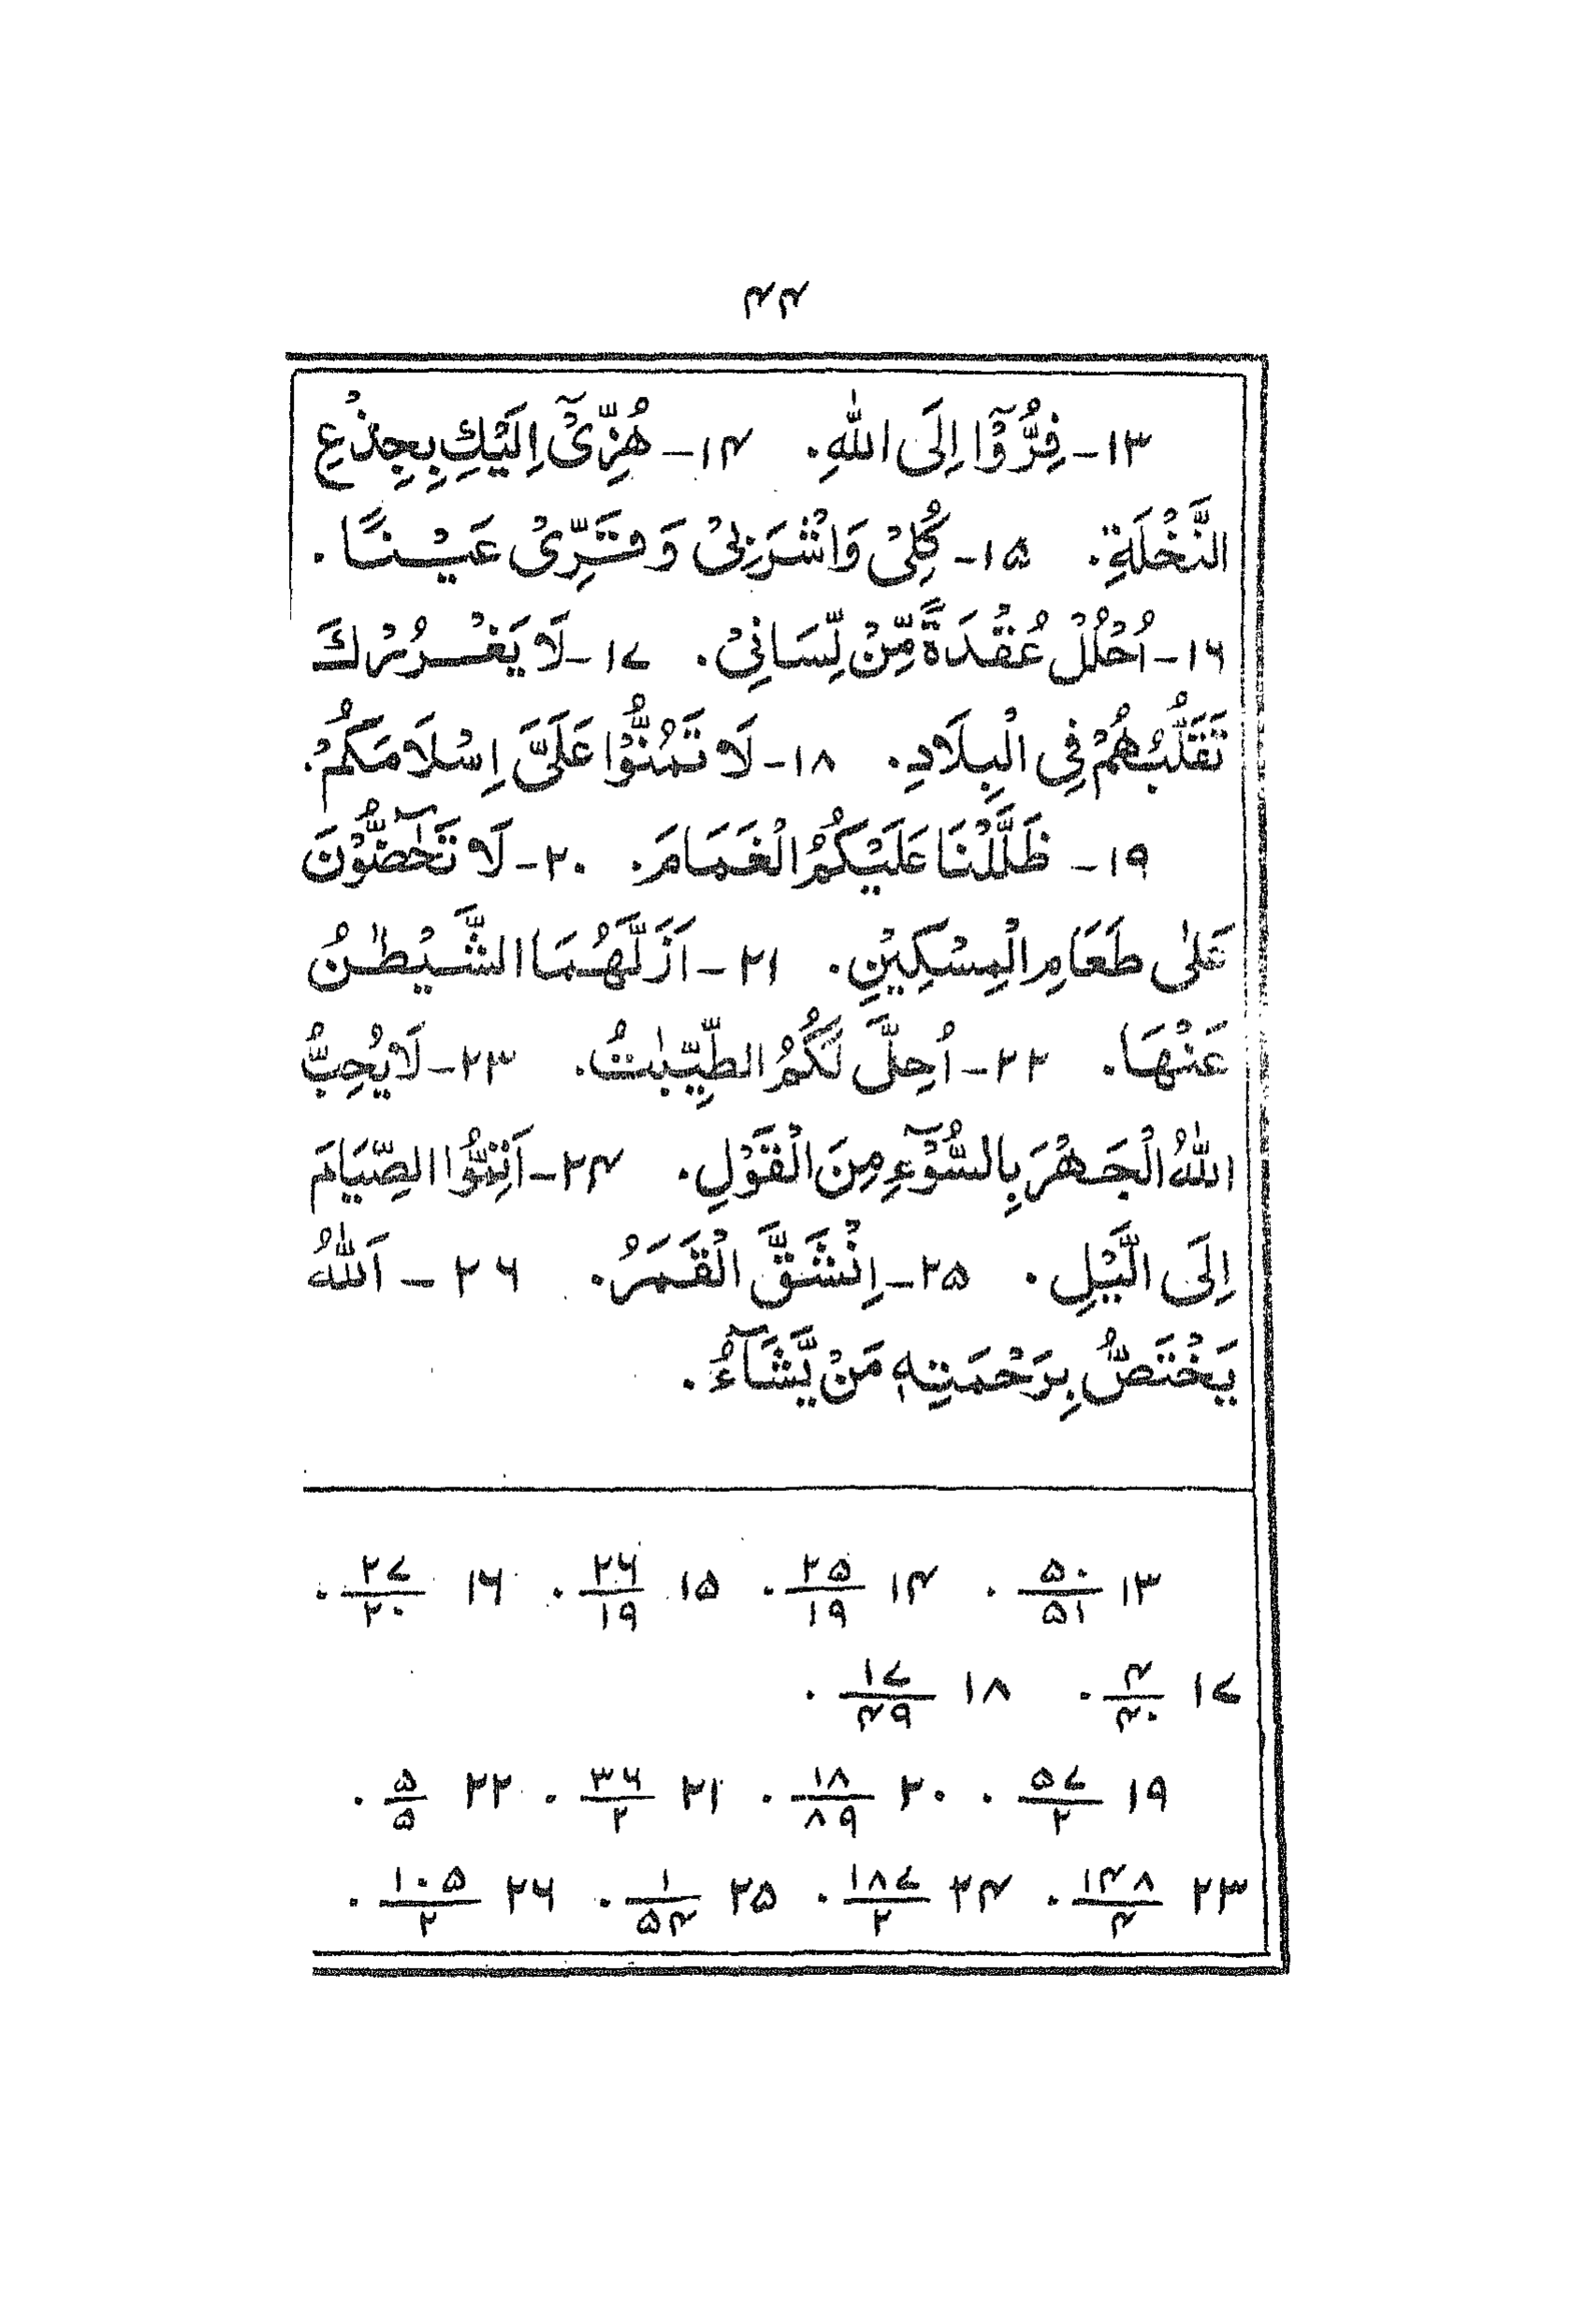 ۴۴
۱۳- فِرُّوْٓا اِلَی اللّٰهِ. ۱۴- هُزِّیْٓ اِلَیْكِ بِجِذْعِ
النَّخْلَةِ. ۱۵- كُلِیْ وَاشْرَبِیْ وَ قَرِّیْ عَیْنًا.
۱۶- اُحْلُلْ عُقْدَةً مِّنْ لِّسَانِیْ. ۱۷- لَا یَغْرُرْكَ
تَقَلُّبُهُمْ فِی الْبِلَادِ. ۱۸- لَا تَمُنُّوْا عَلَیَّ اِسْلَامَكُمْ.
۱۹- ظَلَّلْنَا عَلَیْكُمُ الْغَمَامَ. ۲۰- لَا تَحٰٓضُّوْنَ
عَلٰی طَعَامِ الْمِسْكِیْنِ. ۲۱- اَزَلَّهُمَا الشَّیْطٰنُ
عَنْهَا. ۲۲- اُحِلَّ لَكُمُ الطَّیِّبٰتُ. ۲۳- لَا یُحِبُّ
اللّٰهُ الْجَهْرَ بِالسُّوْٓءِ مِنَ الْقَوْلِ. ۲۴- اَتِمُّوا الصِّیَامَ
اِلَی الَّیْلِ. ۲۵- اِنْشَقَّ الْقَمَرُ. ۲۶- اَللّٰهُ
یَخْتَصُّ بِرَحْمَتِهٖ مَنْ یَّشَآءُ.
۱۳ ۵۰/۵۱. ۱۴ ۲۵/۱۹. ۱۵ ۲۶/۱۹. ۱۶ ۲۷/۲۰.
۱۷ ۴/۴۰. ۱۸ ۱۷/۴۹.
۱۹ ۵۷/۲. ۲۰ ۱۸/۸۹. ۲۱ ۳۶/۲. ۲۲ ۵/۵.
۲۳ ۱۴۸/۴. ۲۴ ۱۸۷/۲. ۲۵ ۱/۵۴. ۲۶ ۱۰۵/۲.